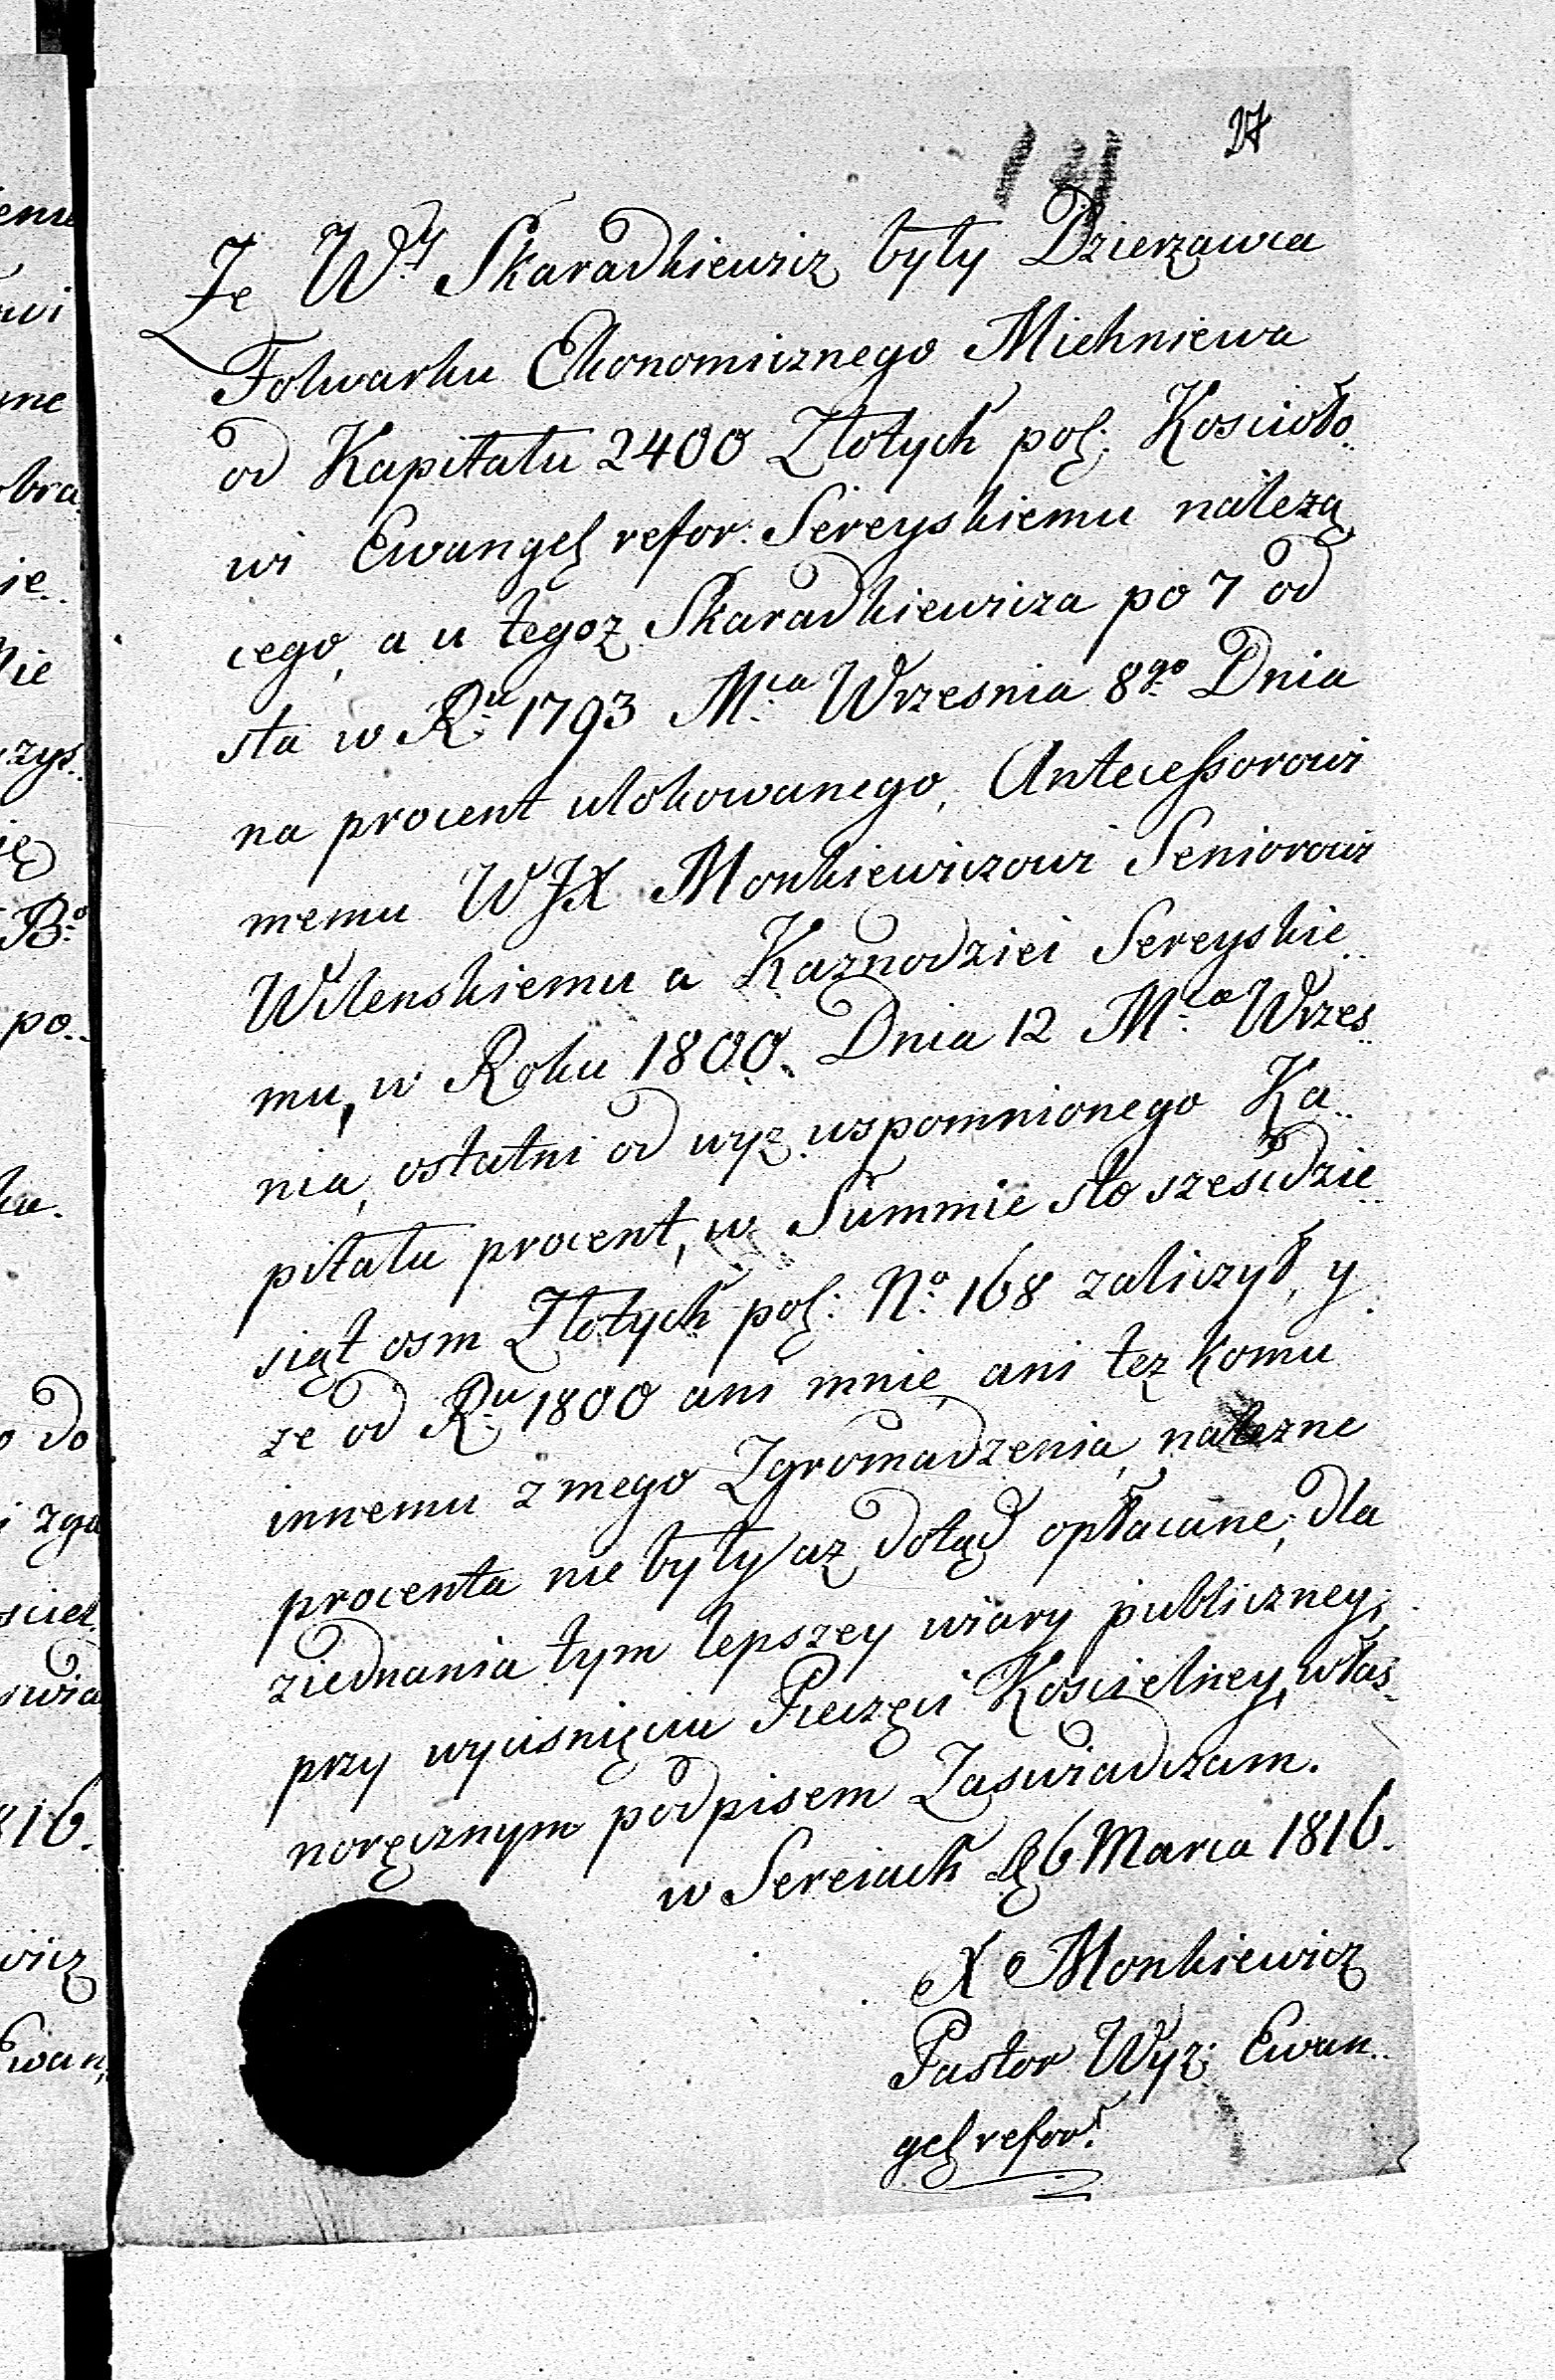 27
14
Ze Wy Skaradkiewicz były Dzierzawca
Folwarku Ekonomicznego Michniewa
od Kapitału 2400 Złotych pol: Koscioło..
wi Ewangel refor: Sereyskiemu należą
cego, a u tegoz Skaradkiewicza po 7 od
sta w Ru 1793 Mca Wrzesnia 8go Dnia
na procent ulokowanego, Antecessorowi
memu WJX Monkiewiczowi Seniorowi
Wilenskiemu a Kaznodziei Sereyskie..
mu, w Roku 1800. Dnia 12 Mca Wrzes..
nia, ostatni od wyz wspomnionego Ka..
pitału procent, w Summie sto sześćdzie..
siąt osm Złotych pol: No 168 zaliczył, y
ze od Ru 1800 ani mnie, ani tez komu
innemu z mego Zgromadzenia, nalezne
procenta nie były az dotąd opłacane; dla
ziednania tym lepszey wiary publiczney,
przy wyciśnięciu Pieczęci Koscielney, włas..
noręcznym podpisem Zaswiadczam.
w Sereiach D 6 Marca 1816.
X Monkiewicz
Pastor Wyz: Ewan..
gel refor: